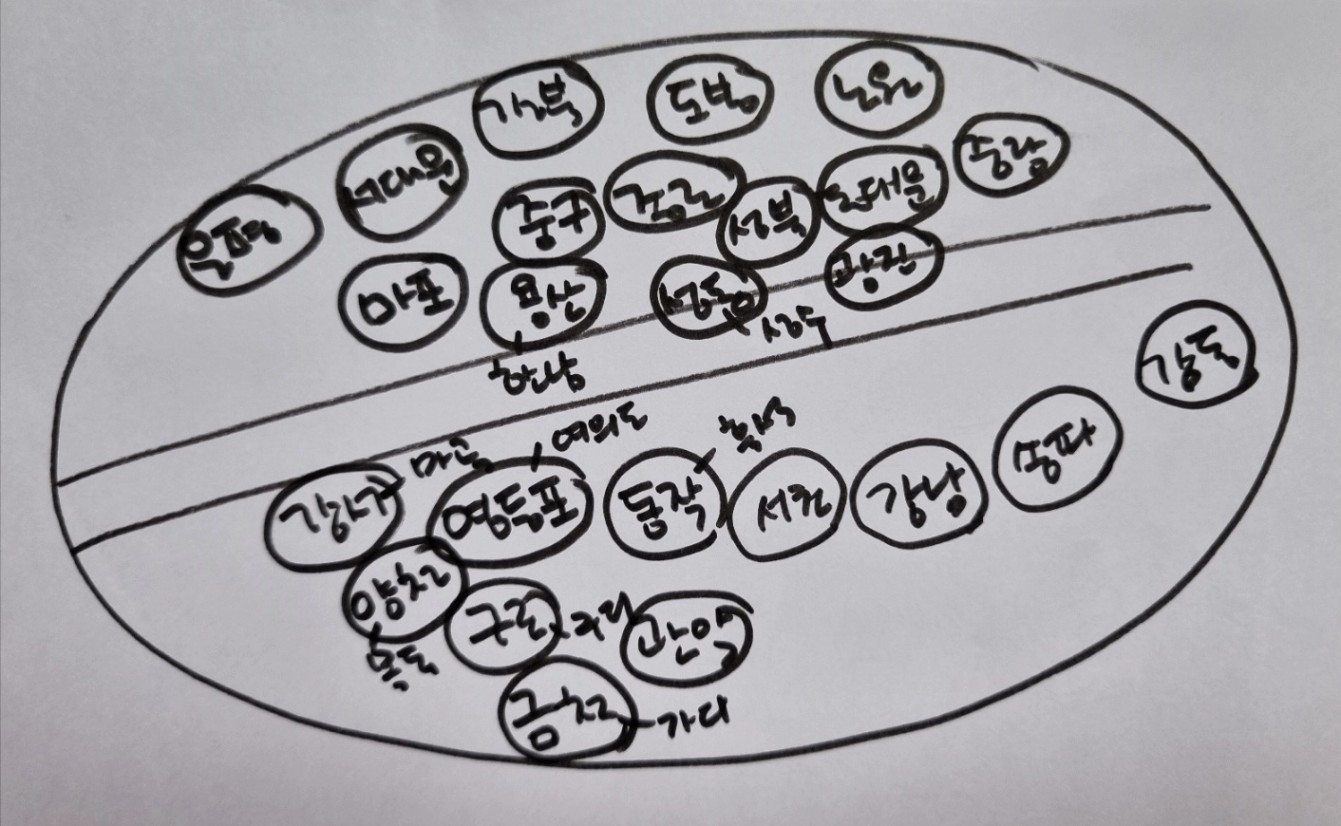 강북
도봉
노원
서대문
중랑
은평
중구
종로
성북
동대문
마포
용산
성동
광진
성수
한남
강동
여의도
흑석
송파
마곡
강서구
영등포
동작
서초
강남
양천
구로
구디
관악
목동
금천
가디